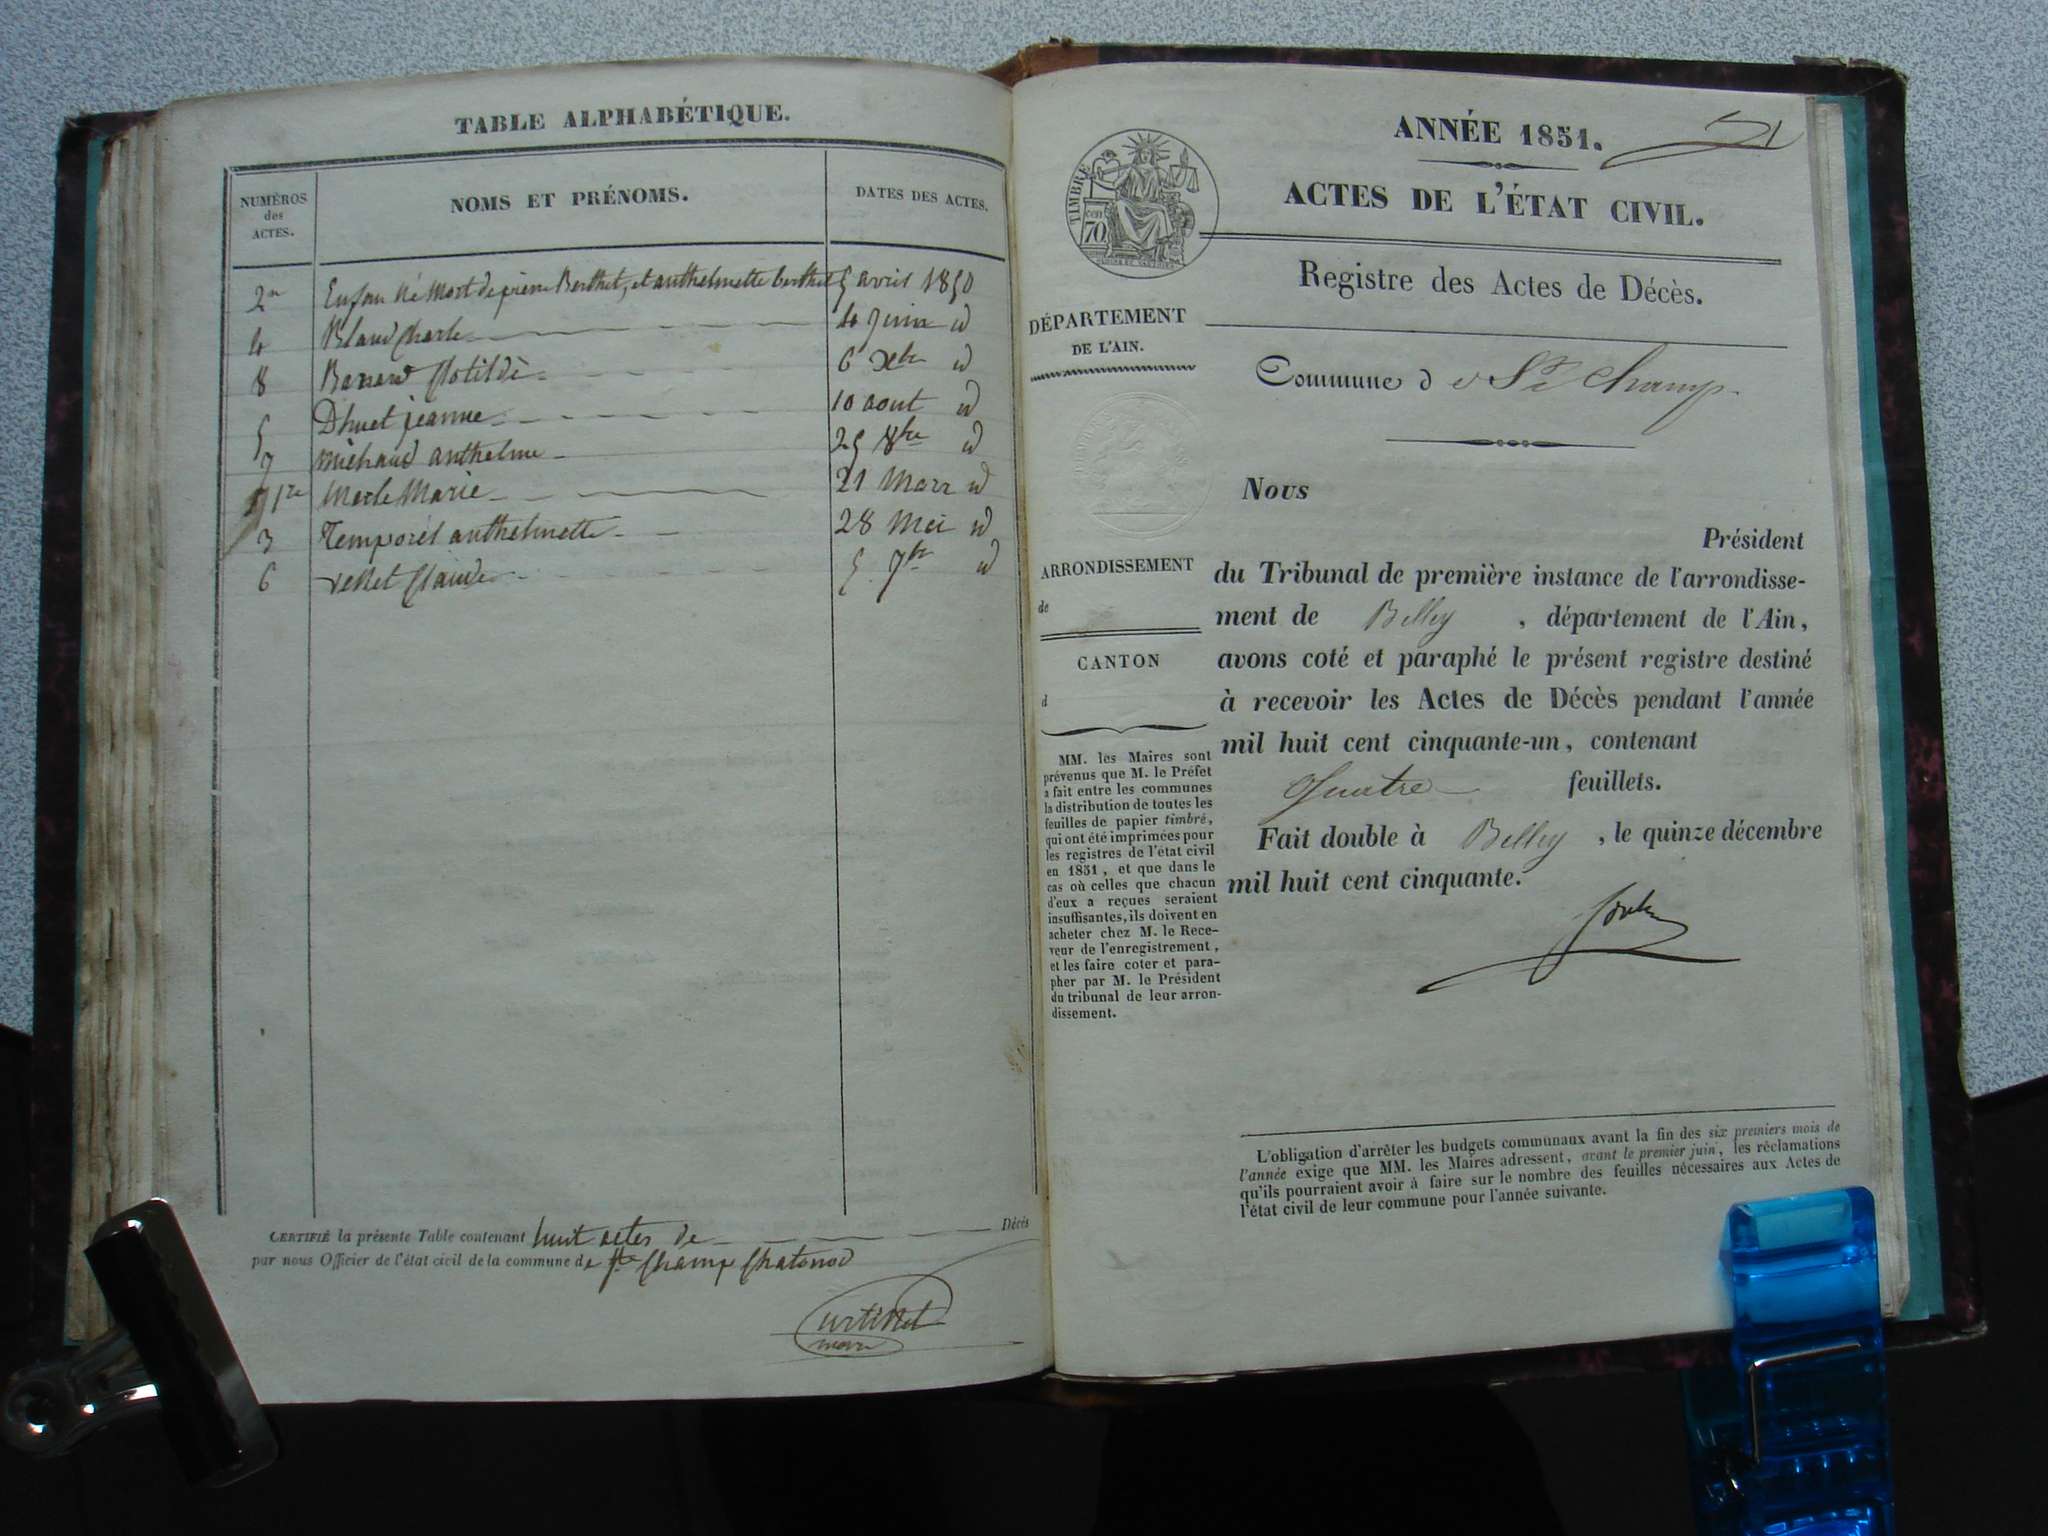 TABLE ALPHABÉTIQUE.
NUMÉROS des ACTES. NOMS ET PRÉNOMS. DATES DES ACTES.
2 Enfant né mort de pierre Berthet, et anthelmette berthet 5 avril 1850
4 Charle 4 juin id
8 Clotilde 6 Xbre id
5 Dhuet jeanne 10 aout id
7 michaud anthelme 25 8bre id
1re Merle Marie 21 Mars id
3 Temporel anthelmette 28 Mai id
6 vettet Claude 5 7bre id
CERTIFIÉ la présente Table contenant huit actes de Décès
par nous Officier de l'état civil de la commune de Ste Champ Chatonod
maire
ANNÉE 1851.
ACTES DE L'ÉTAT CIVIL.
Registre des Actes de Décès.
TIMBRE
70
DÉPARTEMENT
DE L'AIN.
Commune d e Ste Champ
ARRONDISSEMENT
de
CANTON
d
MM. les Maires sont
prévenus que M. le Préfet
a fait entre les communes
la distribution de toutes les
feuilles de papier timbré,
qui ont été imprimées pour
les registres de l'état civil
en 1851, et que dans le
cas où celles que chacun
d'eux a reçues seraient
insuffisantes, ils doivent en
acheter chez M. le Rece-
veur de l'enregistrement,
et les faire coter et para-
pher par M. le Président
du tribunal de leur arron-
dissement.
Nous
Président
du Tribunal de première instance de l'arrondisse-
ment de Belley, département de l'Ain,
avons coté et paraphé le présent registre destiné
à recevoir les Actes de Décès pendant l'année
mil huit cent cinquante-un, contenant
Quatre feuillets.
Fait double à Belley, le quinze décembre
mil huit cent cinquante.
L'obligation d'arrêter les budgets communaux avant la fin des six premiers mois de
l'année exige que MM. les Maires adressent, avant le premier juin, les réclamations
qu'ils pourraient avoir à faire sur le nombre des feuilles nécessaires aux Actes de
l'état civil de leur commune pour l'année suivante.